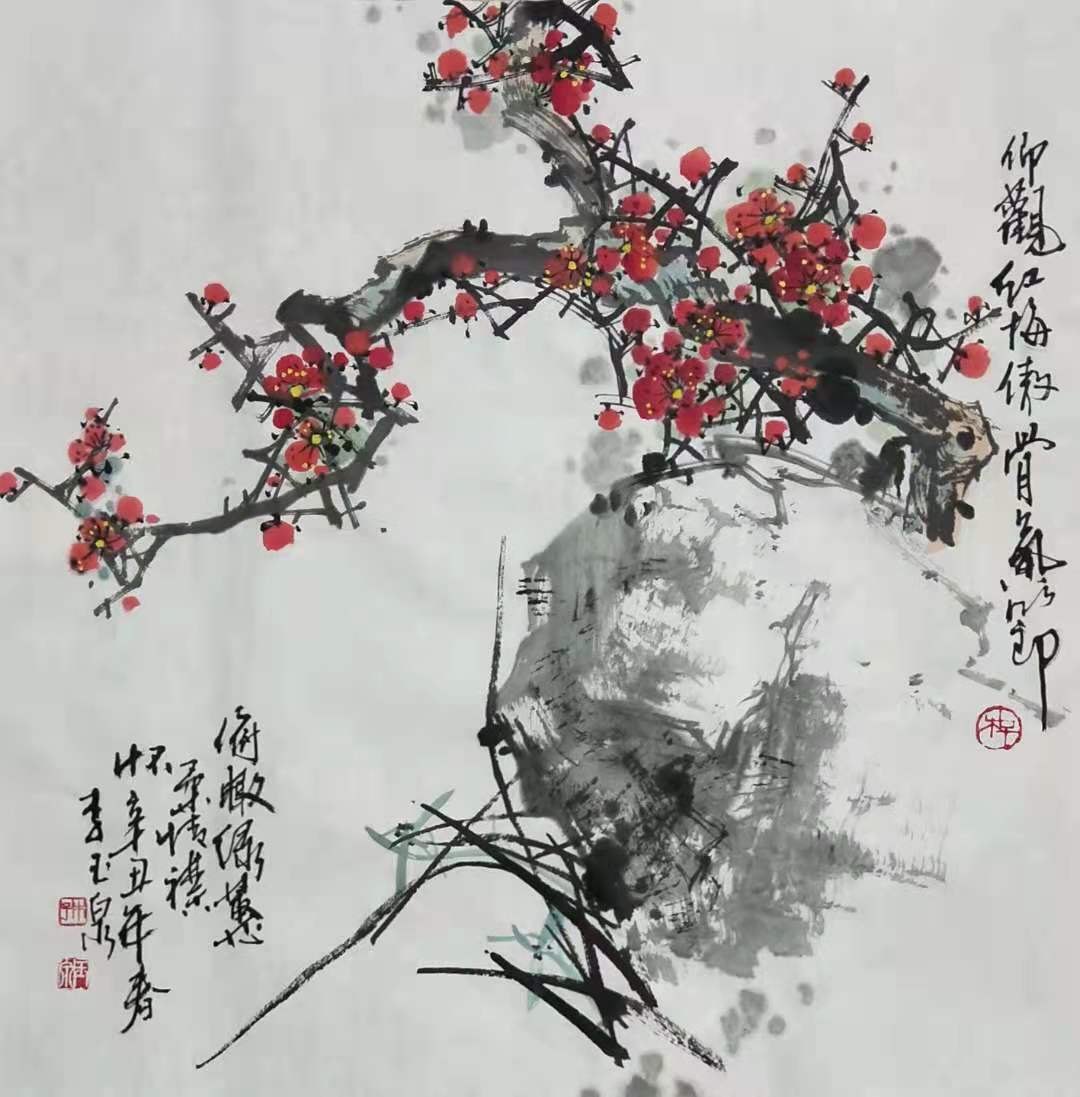 仰觀红梅傲骨氣節
俯瞰绿蕙
柔情襟
怀辛丑年春
李玉泉